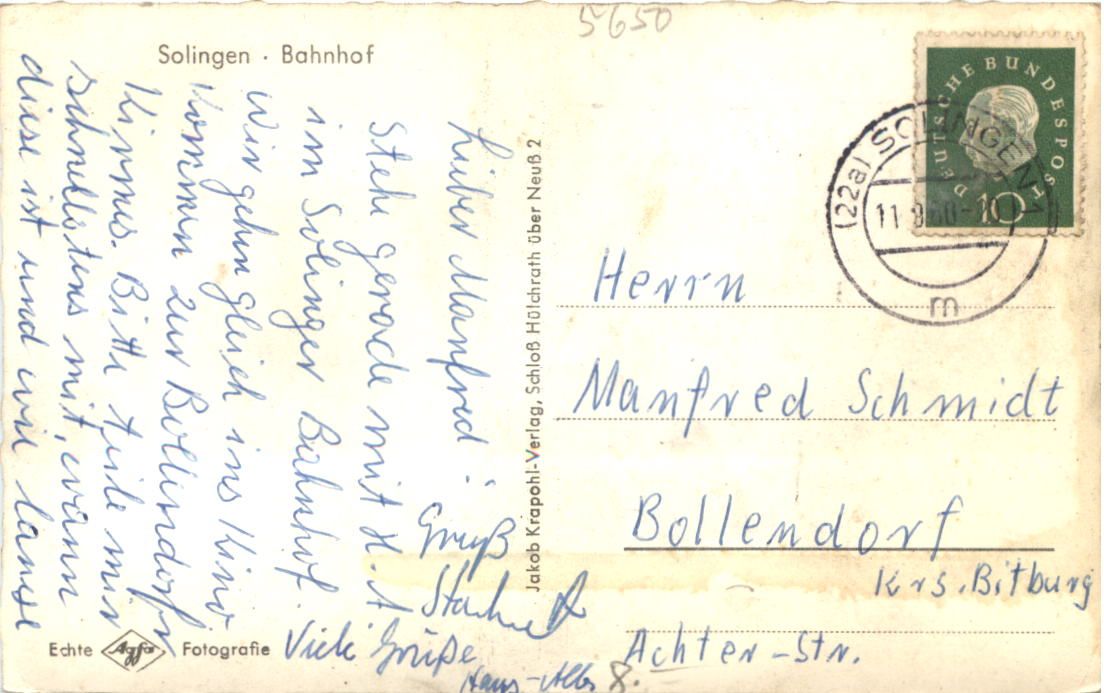 5650
Solingen · Bahnhof
Lieber Manfred!
Stehe gerade mit H. A
im Solinger Bahnhof.
Wir gehn gleich ins Kino
Kommen zur Bollendorfr
Kirmes. Bitte teile mir
schnellstens mit, wann
diese ist und wie lange
Gruß
Viele Grüße
Hans-Albr
8.
Echte Agfa Fotografie
Jakob Krapohl-Verlag, Schloß Hülchrath über Neuß 2
DEUTSCHE BUNDESPOST
10
(22a) SOLINGEN 1
11.9.60-10
m
Herrn
Manfred Schmidt
Bollendorf
Krs. Bitburg
Achten-Str.